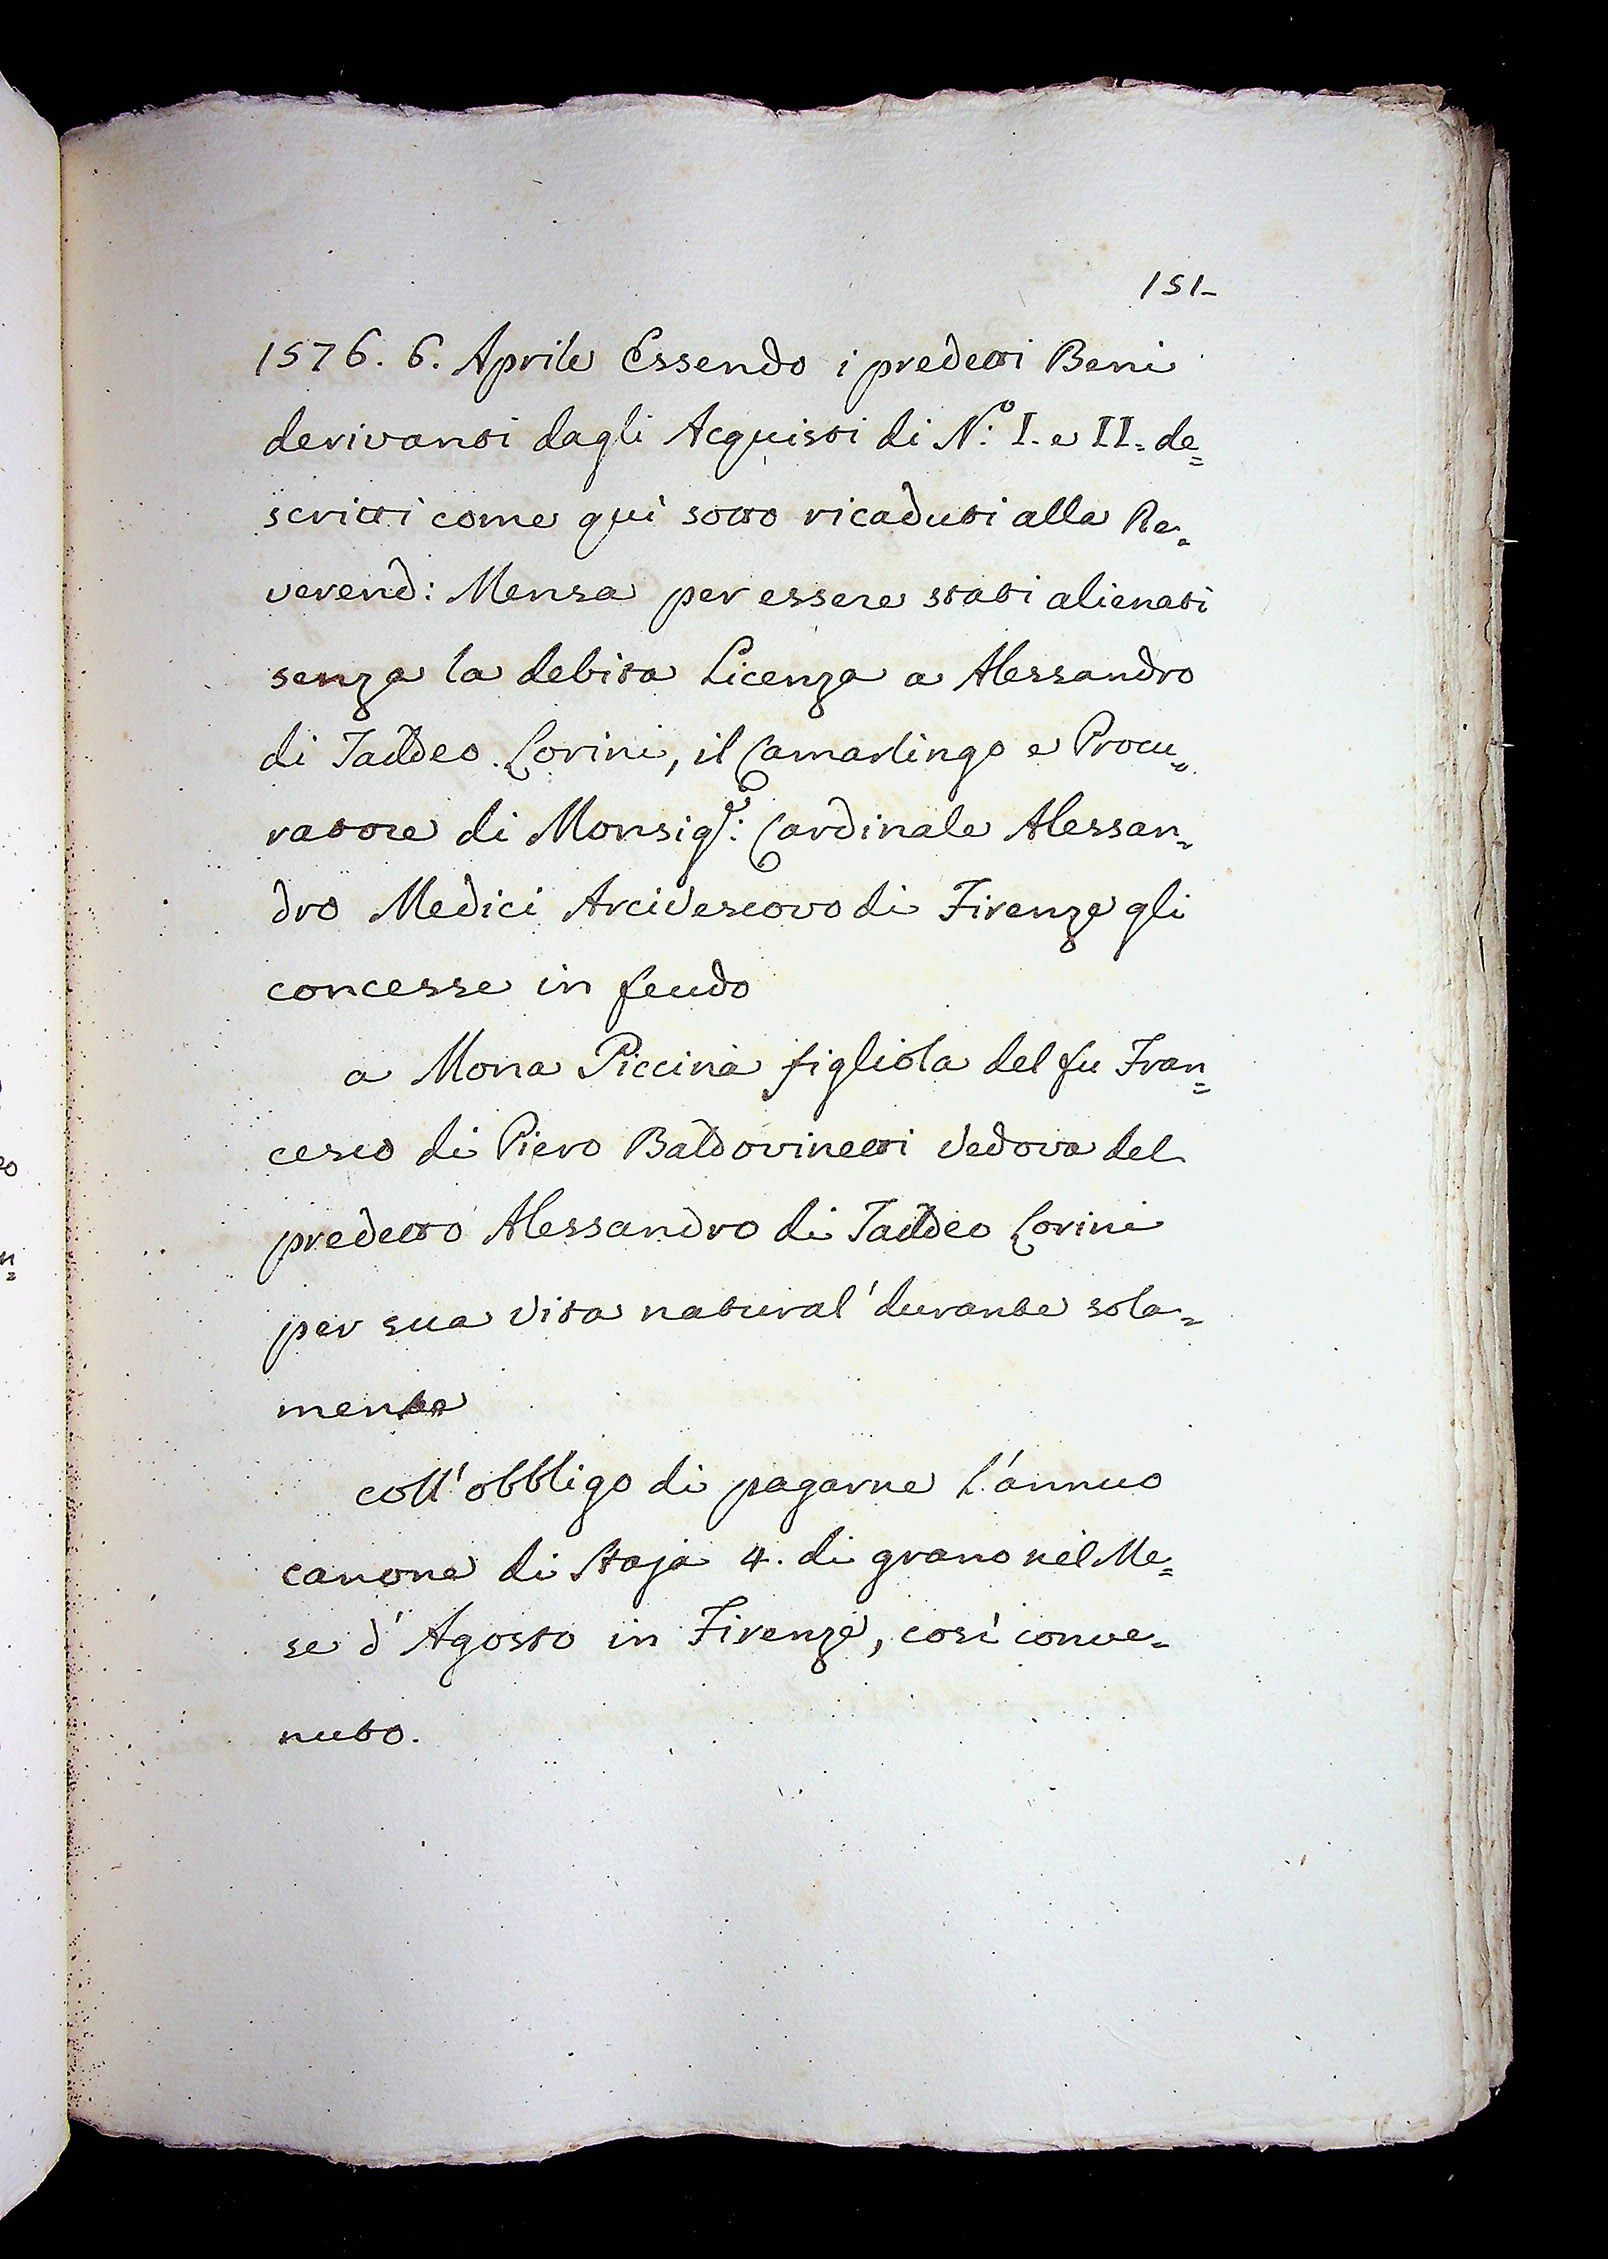 151-
1576. 6. Aprile Essendo i predetti Beni
derivanti dagli Acquisti di N.º I. e II. de=
scritti come quì sotto ricaduti alla Re=
verend: Mensa per essere stati alienati
senza la debita Licenza a Alessandro
di Taddeo Lorini, il Camarlingo e Procu=
ratore di Monsig.r: Cardinale Alessan=
dro Medici Arcivescovo di Firenze gli
concesse in feudo
a Mona Piccina figliola del fu Fran=
cesco di Piero Baldovinetti Vedova del
predetto Alessandro di Taddeo Lorini
per sua Vita natural' durante sola=
mente
coll' obbligo di pagarne l'annuo
canone di Staja 4. di grano nel Me=
se d'Agosto in Firenze, così conve=
nuto.